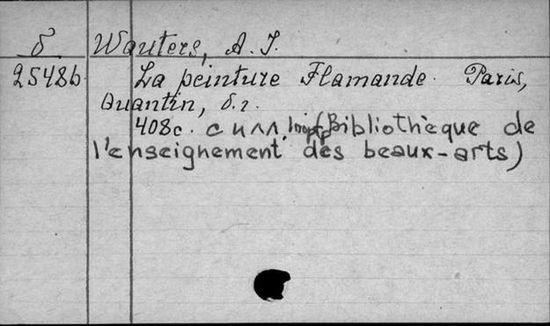 б Wauters, A. J.
25486 La peinture Flamande. Paris,
Quantin, б. г.
408 с. с илл. (Bibliothèque de
l'enseignement des beaux-arts)